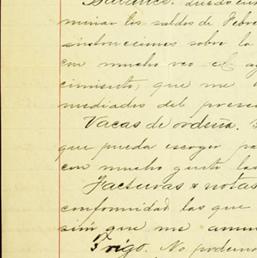 Balances. Puedo
minar los saldos de Febre
instrucciones sobre la
con mucho veo el
cimiento, que me
mediados del pres
Vacas de ordeña.
que pueda escoger
con mucho gusto las
Facturas & notas
conformidad las que
sin que me anun
Trigo. No podemo